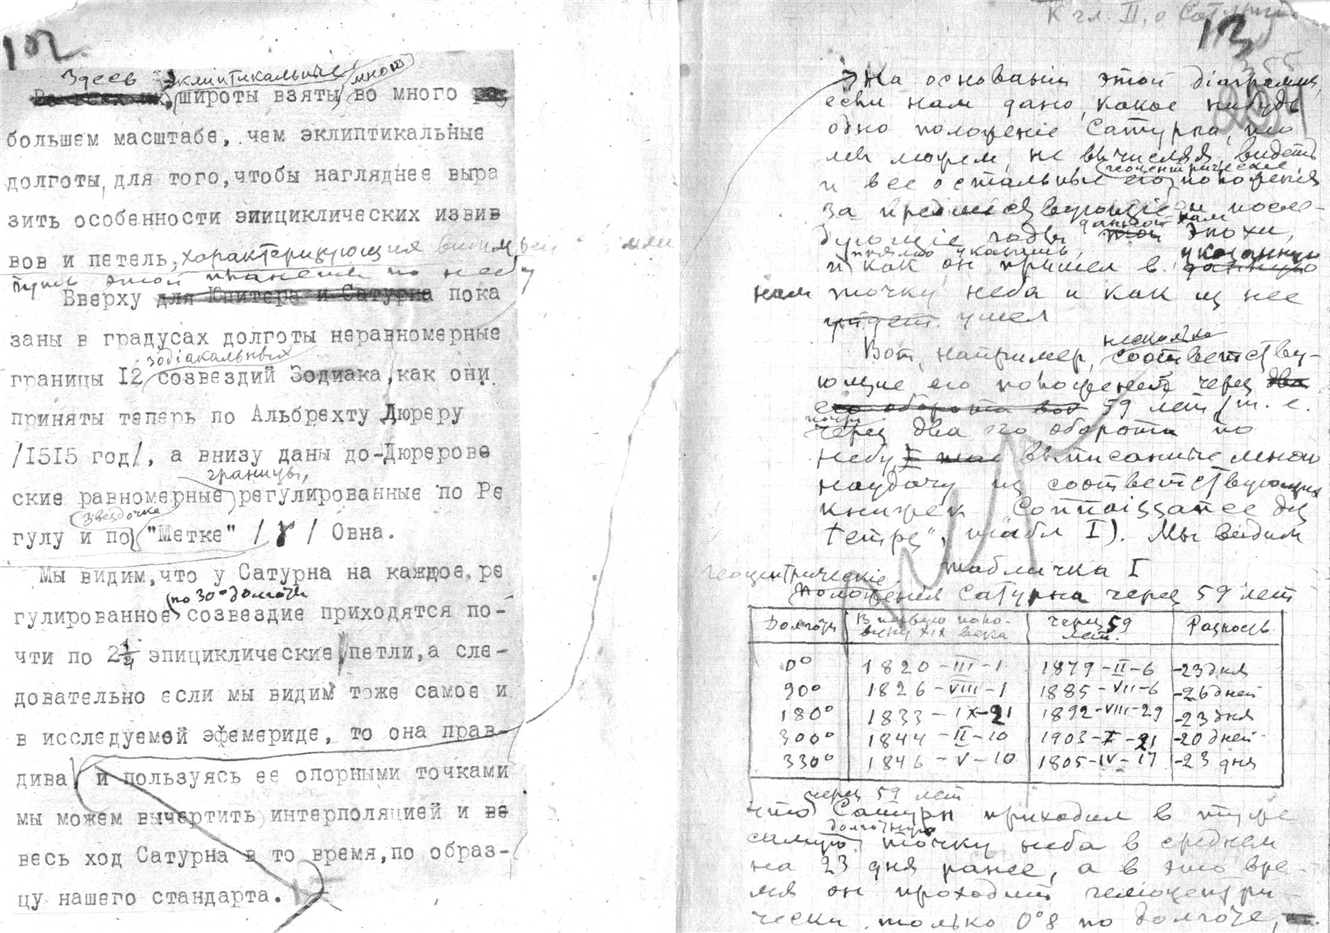 102
Здесь эклиптикальные мною
широты взяты во много раз
большем масштабе, чем эклиптикальные
долготы, для того, чтобы нагляднее выра
зить особенности эпициклических извив
вов и петель, характеризующия видимый
путь этой планеты по небу
Вверху для Юпитера и Сатурна пока
заны в градусах долготы неравномерные
зодіакальных
границы 12 созвездий Зодиака, как они
приняты теперь по Альбрехту Дюреру
/1515 год/, а внизу даны до-Дюрерове
границы,
ские равномерные регулированные по Ре
звездочке
гулу и по "Метке" /γ/ Овна.
Мы видим, что у Сатурна на каждое, ре
по 30° долготы
гулированное созвездие приходятся по-
чти по 2¼ эпициклические петли, а сле-
довательно если мы видим тоже самое и
в исследуемой эфемериде, то она прав-
дива, и пользуясь ее опорными точками
мы можем вычертить интерполяцией и ве
весь ход Сатурна в то время, по образ-
цу нашего стандарта.
К гл. II, о Сатурне
13
355
На основаніи этой діаграммы,
если нам дано какое нибудь
одно положеніе Сатурна, то
мы можем, не вычисляя, видеть
геоцентрические
и все остальные его положения
за предшествующіе и после-
данной нам
дующіе годы той эпохи,
прямо указать, указанную
и как он пришел в данную
нам точку неба и как из нее
уйдет. ушел
несколько
Вот, например, соответству-
ющие его положения через два
его оборота вот 59 лет (т. е.
почти
через два его оборота по
небу), выписанные мною
наудачу из соответствующих
книжек "Connaissance des
temps", табл I). Мы видим
табличка I
геоцентрическіе
положения Сатурна через 59 лет
Долгота В первую поло-вину XIX века через 59 лет. Разность
0° 1820-III-1 1879-II-6 -23 дня
90° 1826-VIII-1 1885-VII-6 -26 дней
180° 1833-IX-21 1892-VIII-29 -23 дня
300° 1844-II-10 1903-I-21 -20 дней
330° 1846-V-10 1805-IV-17 -23 дня
через 59 лет
что Сатурн приходил в туже
долготную
самую точку неба в среднем
на 23 дня ранее, а в это вре-
мя он проходит гелиоцентри-
чески только 0°8 по долготе,